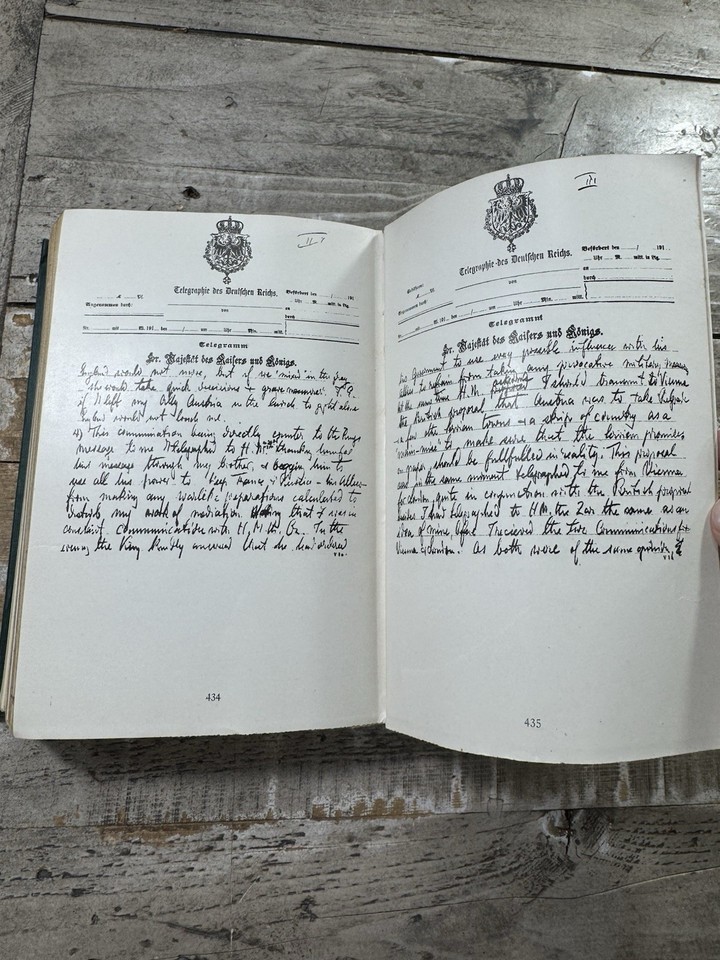 II
Telegraphie des Deutschen Reichs.
Angenommen durch:
von
Befördert den / 191
Uhr M. mitt. in Ltg.
an
durch
Nr. mit W. 191 den / um Uhr Min. mitt.
Telegramm
Sr. Majestät des Kaisers und Königs.
England would not move, but if we "mixed" in the fray
she would take quick decisions & grave measures. I.e.
if I left my Ally Austria in the lurch to fight alone
England would not touch me.
This communication being directly counter to the King's
message to me I telegraphed to H. M. thanking him for
his message through my brother & begging him to
use all his power to keep France & Russia – his Allies –
from making any warlike preparations calculated to
disturb my work of mediation stating that I was in
constant communication with H. M. the In the
evening the King kindly answered that he had ordered
434
III
Telegraphie des Deutschen Reichs.
von
Befördert den / 191
Uhr M. mitt. in Ltg.
an
durch
Angenommen durch:
Nr. mit W. 191 den / um Uhr Min. mitt.
Telegramm
Sr. Majestät des Kaisers und Königs.
his Government to use every possible influence with his
Allies to refrain from taking any provocative military measures
at the same time H. M. I should transmit to Vienna
the British proposal that Austria was to take Belgrade
a few other Servian towns & a strip of country as a
to make sure that the Servian promises
on paper should be fullfilled in reality. This proposal
was in the same moment telegraphed to me from Vienna
for London, quite in conjunction with the British proposal
I had telegraphed to H. M. the Zar the same as an
idea of mine, before I recieved the two Communications from
Vienna & London. As both were of the same opinion, I
435